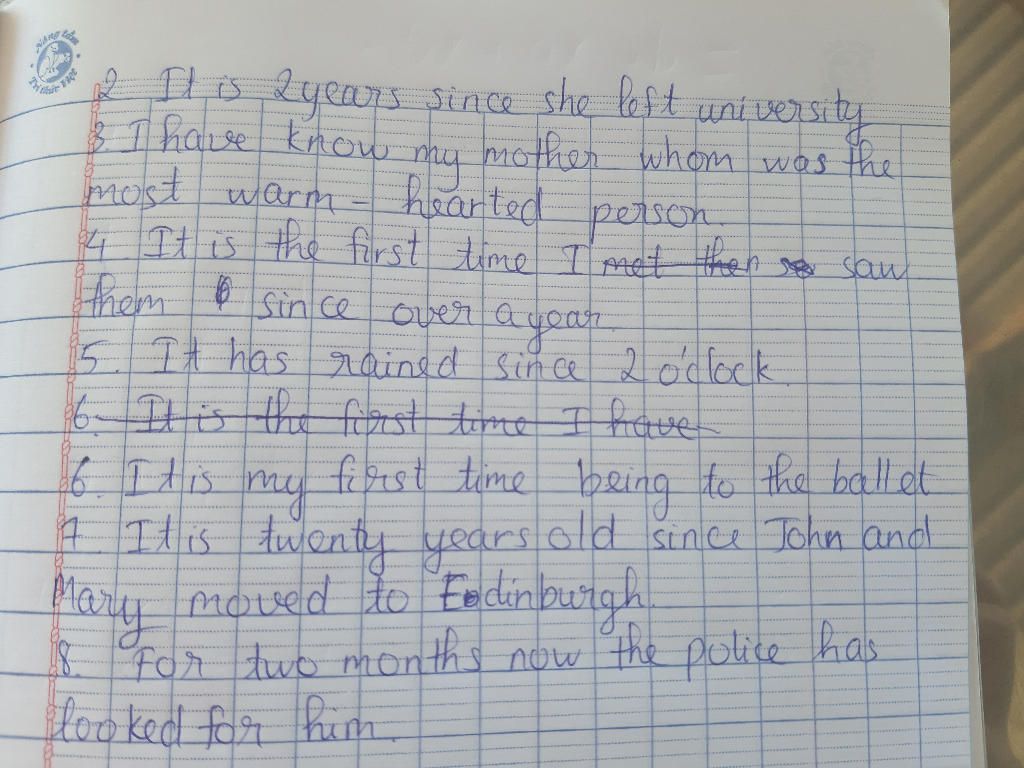 Nâng tầm
Tri thức Việt
2 It is 2 years since she left university
3 I have know my mother whom was the
most warm - hearted person.
4 It is the first time I met then se saw
them since over a year.
5. It has rained since 2 o'clock.
6. It is the first time I have
6. It is my first time being to the ballet
7. It is twenty years old since John and
Mary moved to Edinburgh.
8. For two months now the police has
looked for him.